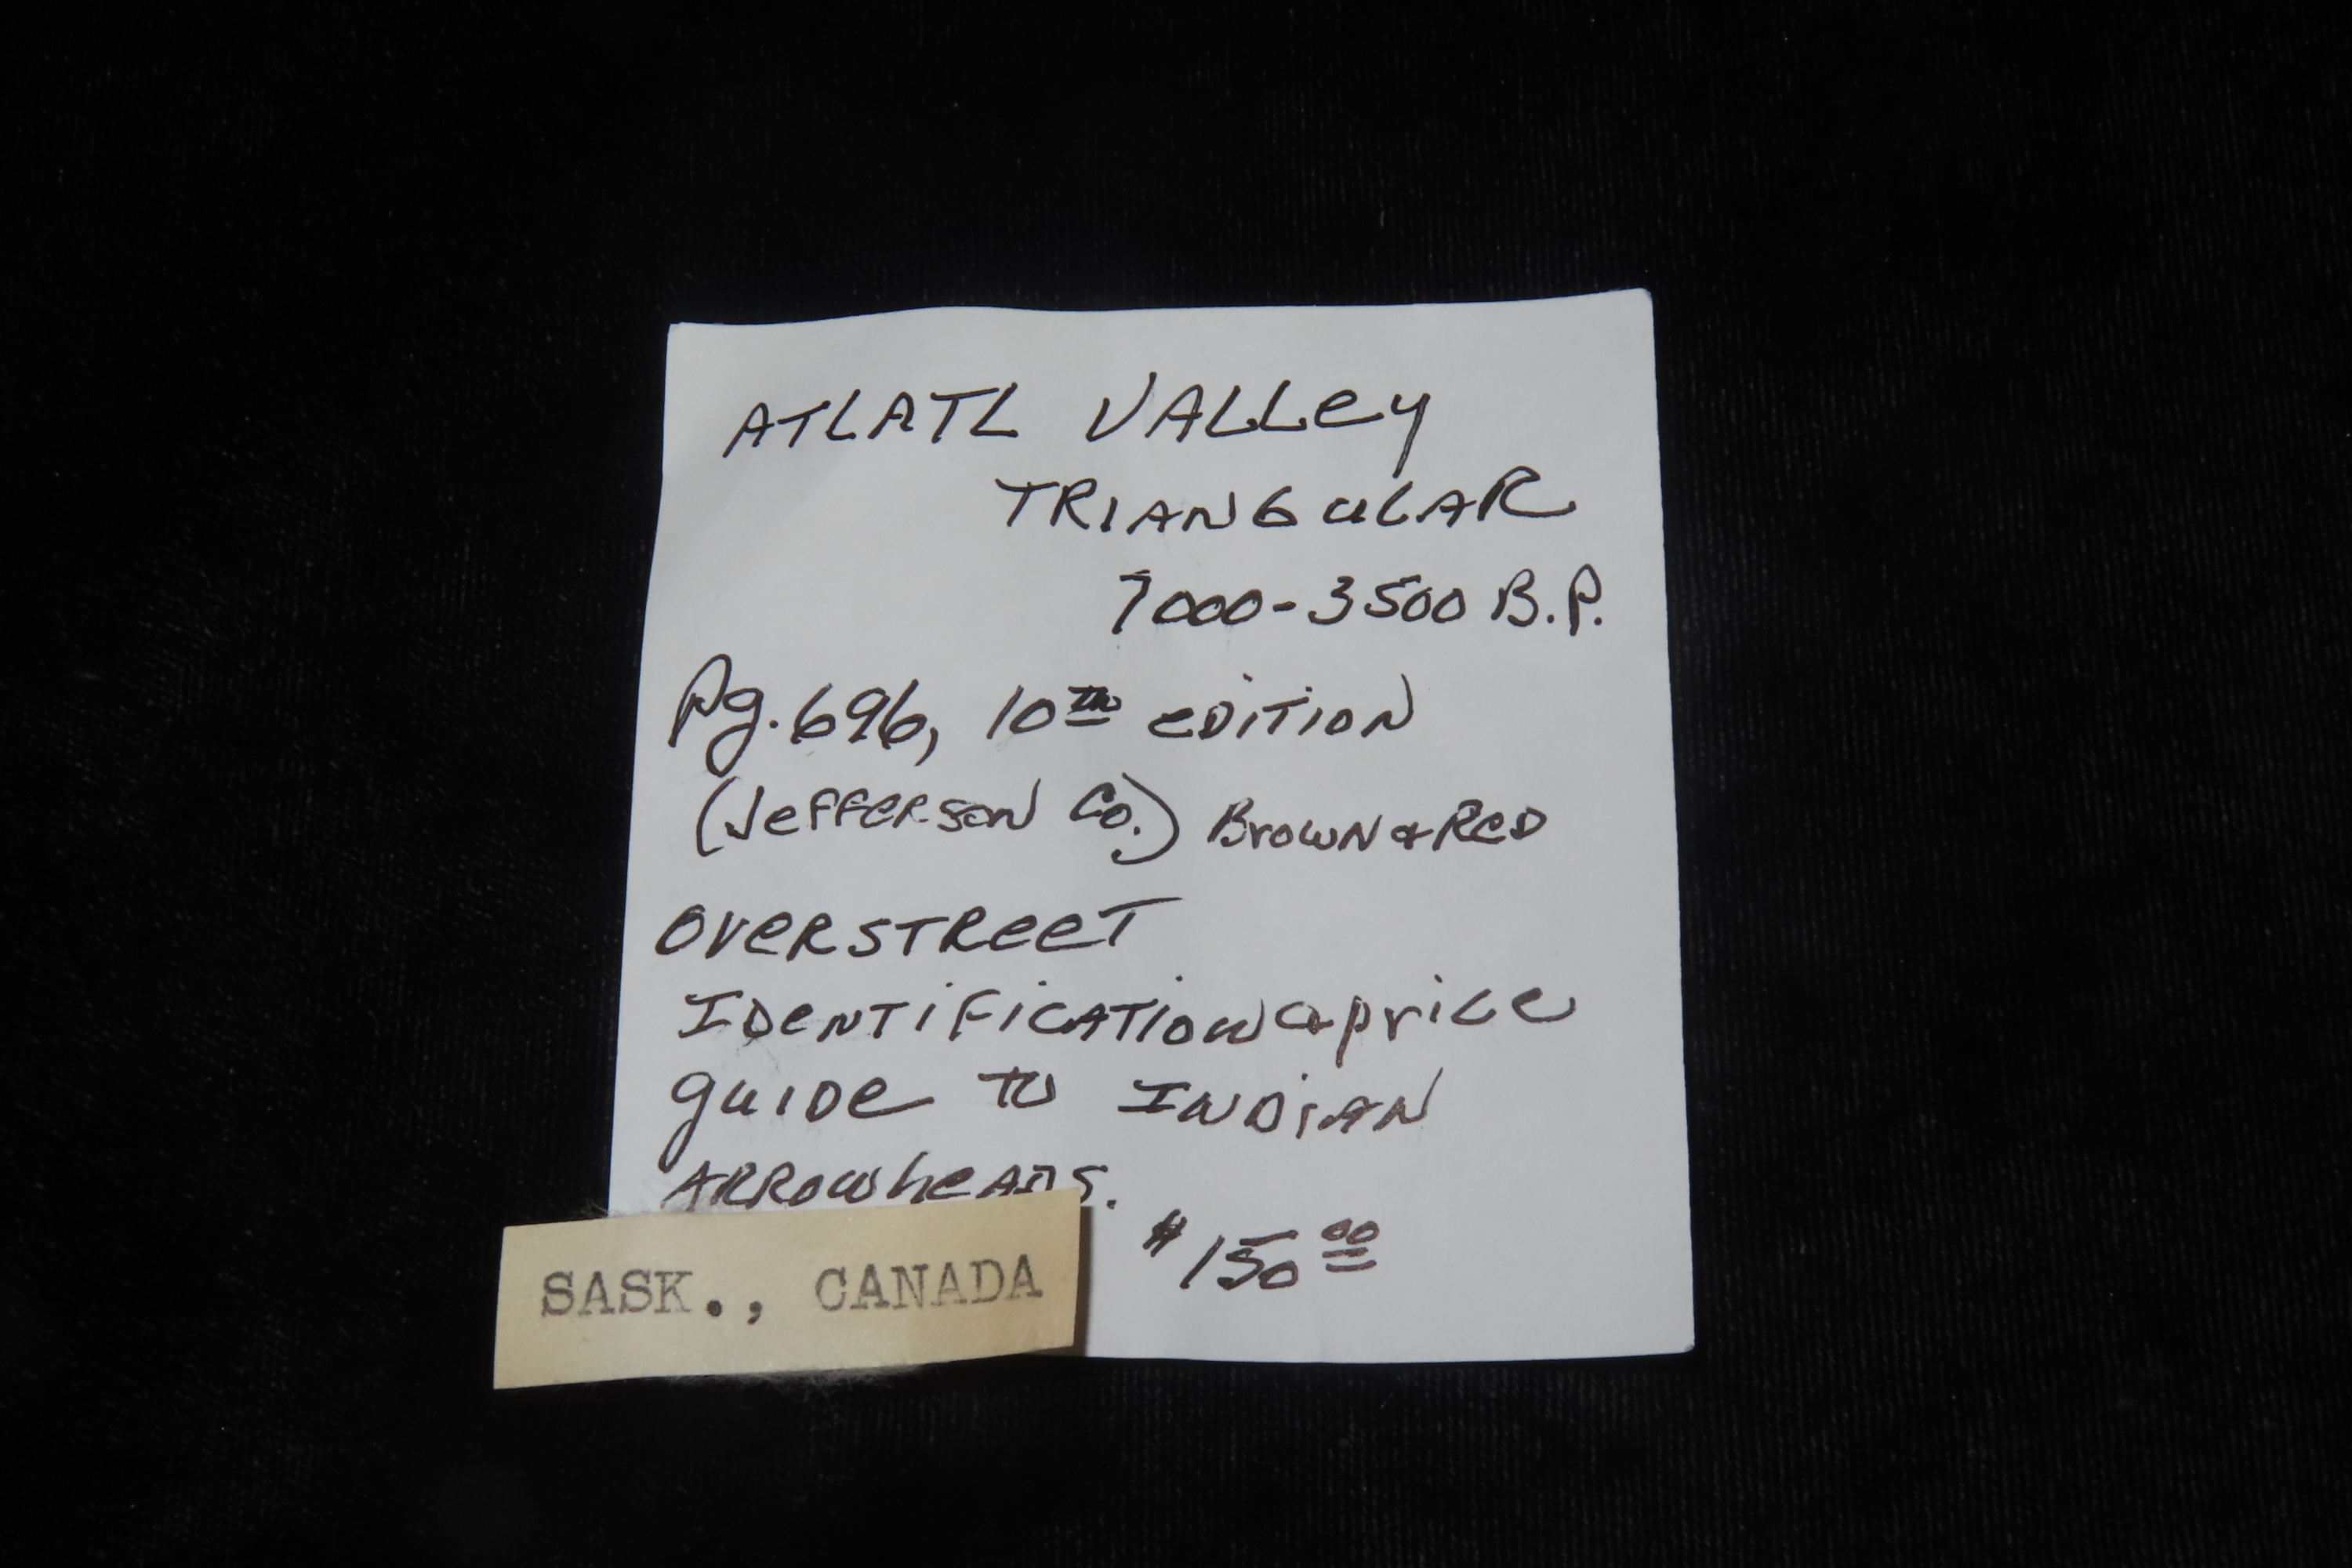 ATLATL VALLey
TRIANGULAR
7000-3500 B.P.
Pg. 696, 10th eDITION
(JeFFeRson Co.) Brown & ReD
OVeRSTReeT
IDeNTiFiCATioN & price
guIDe To INDiAN
ARROwheADS.
$150.00
SASK., CANADA